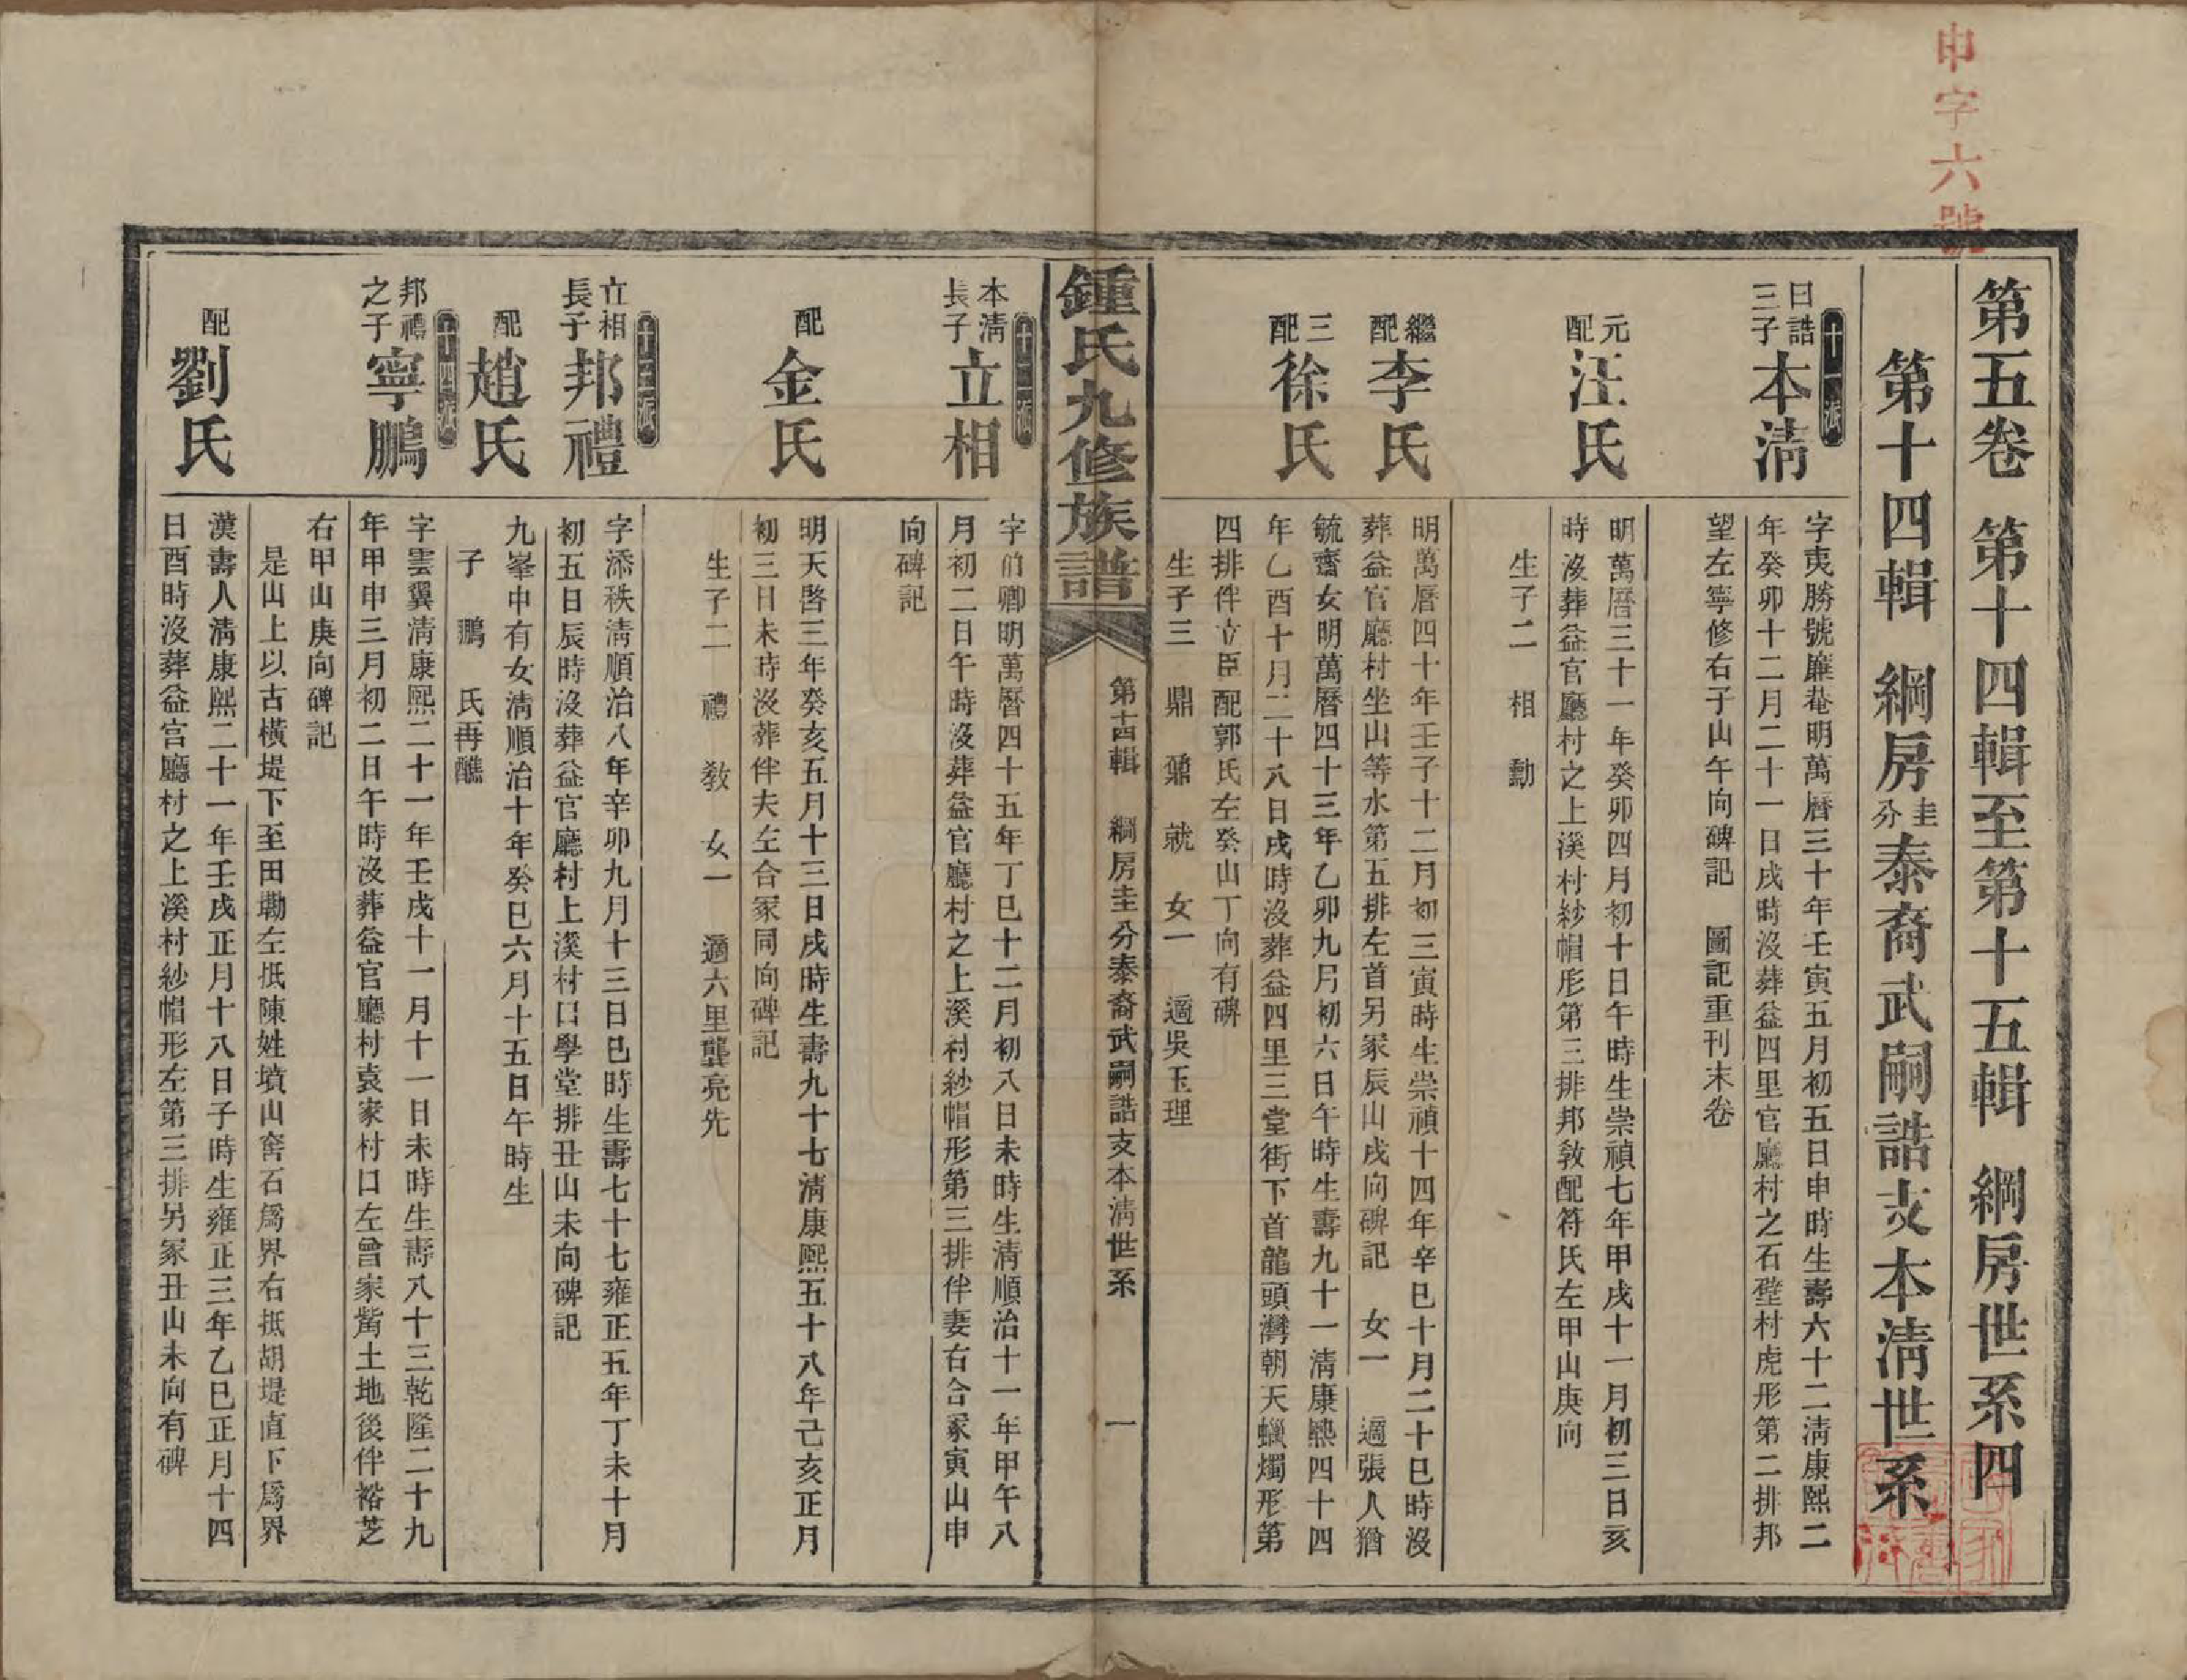 申字六號
第五卷 第十四輯至第十五輯 綱房世系四
第十四輯 綱房圭分泰裔武嗣誥支本淸世系
十一派
曰誥三子 本淸
字夷勝號㢘菴明萬曆三十年壬寅五月初五日申時生壽六十二淸康熙二
年癸卯十二月二十一日戌時沒葬益四里官廳村之石壁村虎形第二排邦
望左寧修右子山午向碑記 圖記重刊末卷
元配 汪氏
明萬曆三十一年癸卯四月初十日午時生崇禎七年甲戌十一月初三日亥
時沒葬益官廳村之上溪村紗帽形第三排邦敎配符氏左甲山庚向
生子二 相 勳
繼配 李氏
明萬曆四十年壬子十二月初三寅時生崇禎十四年辛巳十月二十巳時沒
葬益官廳村坐山等水第五排左首另冢辰山戌向碑記 女一 適張人猶
三配 徐氏
毓齋女明萬曆四十三年乙卯九月初六日午時生壽九十一淸康熙四十四
年乙酉十月二十八日戌時沒葬益四里三堂街下首龍頭灣朝天蠟燭形第
四排伴立臣配郭氏左癸山丁向有碑
生子三 鼎 鼐 就 女一 適吳玉理
鍾氏九修族譜
第十四輯 綱房圭分泰裔武嗣誥支本淸世系 一
十二派
本淸長子 立相
字伯卿明萬曆四十五年丁巳十二月初八日未時生淸順治十一年甲午八
月初二日午時沒葬益官廳村之上溪村紗帽形第三排伴妻右合冢寅山申
向碑記
配 金氏
明天啓三年癸亥五月十三日戌時生壽九十七淸康熙五十八年己亥正月
初三日未時沒葬伴夫左合冢同向碑記
生子二 禮 敎 女一 適六里龔亮先
十三派
立相長子 邦禮
字添秩淸順治八年辛卯九月十三日巳時生壽七十七雍正五年丁未十月
初五日辰時沒葬益官廳村上溪村口學堂排丑山未向碑記
配 趙氏
九峯中有女淸順治十年癸巳六月十五日午時生
子 鵬 氏再醮
十四派
邦禮之子 寧鵬
字雲翼淸康熙二十一年壬戌十一月十一日未時生壽八十三乾隆二十九
年甲申三月初二日午時沒葬益官廳村袁家村口左曾家嘴土地後伴裕芝
右甲山庚向碑記
是山上以古橫堤下至田勘左抵陳姓墳山窖石爲界右抵胡堤直下爲界
配 劉氏
漢壽人淸康熙二十一年壬戌正月十八日子時生雍正三年乙巳正月十四
日酉時沒葬益官廳村之上溪村紗帽形左第三排另冢丑山未向有碑